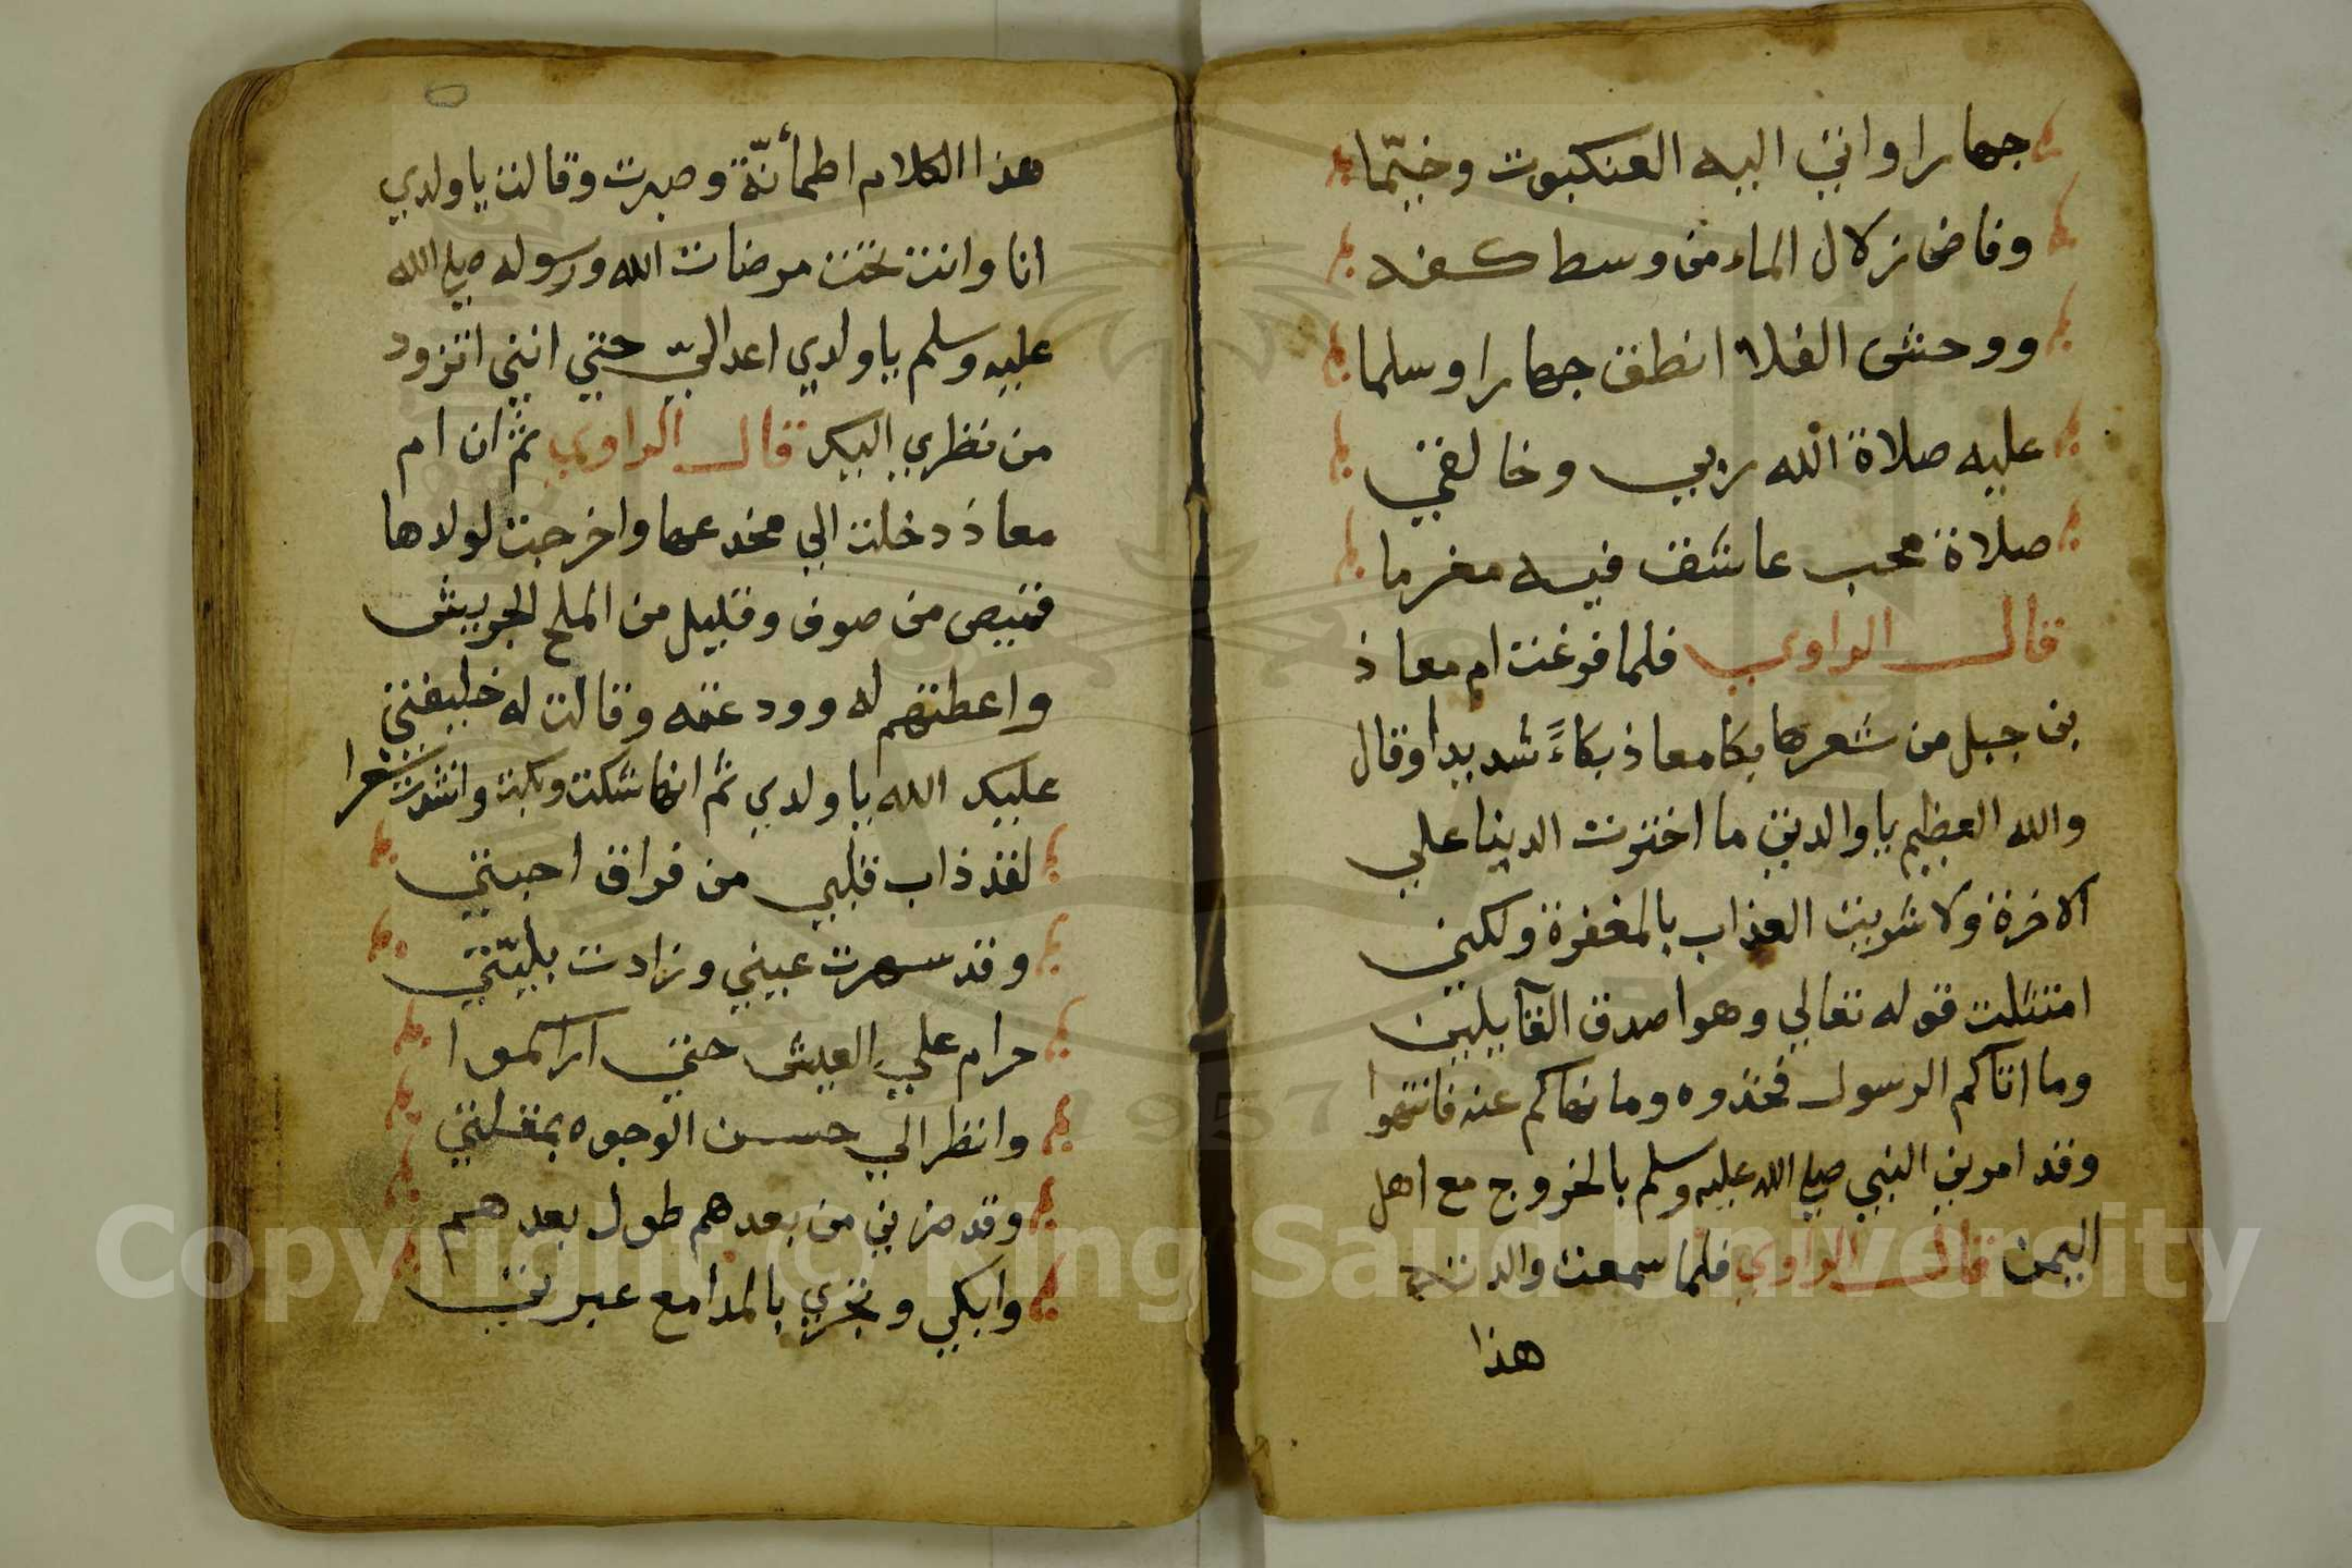 جهارا واتى اليه العنكبوت وخيّما
وفاض زلال الماء من وسط كفه
ووحش الفلا انطق جهارا وسلما
عليه صلاة الله ربي وخالقي
صلاة محب عاشق فيه مغرما
قال الراوي فلما فرغت ام معاذ
بن جبل من شعرها بكا معاذ بكاءً شديدا وقال
والله العظيم يا والدتي ما اخترت الدينا علي
الاخرة ولا شريت العذاب بالمغفرة ولكني
امتثلت قوله تعالي وهو اصدق القآيلين
وما اتاكم الرسول فخذوه وما نهاكم عنه فانتهوا
وقد امرني النبي صلي الله عليه وسلم بالخروج مع اهل
اليمن قال الراوي فلما سمعت والدته
هذا
هذا الكلام اطمأنّة وصبرت وقالت يا ولدي
انا وانت تحت مرضات الله ورسوله صلي الله
عليه وسلم يا ولدي اعد اليّ حتي انني اتزود
من نظري اليك قال الراوي ثم ان ام
معاذ دخلت الي مخدعها واخرجت لولدها
قميص من صوف وقليل من الملح الجريش
واعطتهم له وودعته وقالت له خليفتي
عليك الله يا ولدي ثم انها شكت وبكت وانشدت شعرا
لقد ذاب قلبي من فراق احبتي
وقد سهرت عيني وزادت بليّتي
حرام علي العيش حتي اراكموا
وانظر الي حسن الوجوه بمقلتي
وقد ضرني من بعدهم طول بعدهم
وابكي وتجري بالمدامع عبرتي
Copyright © King Saud University
1957